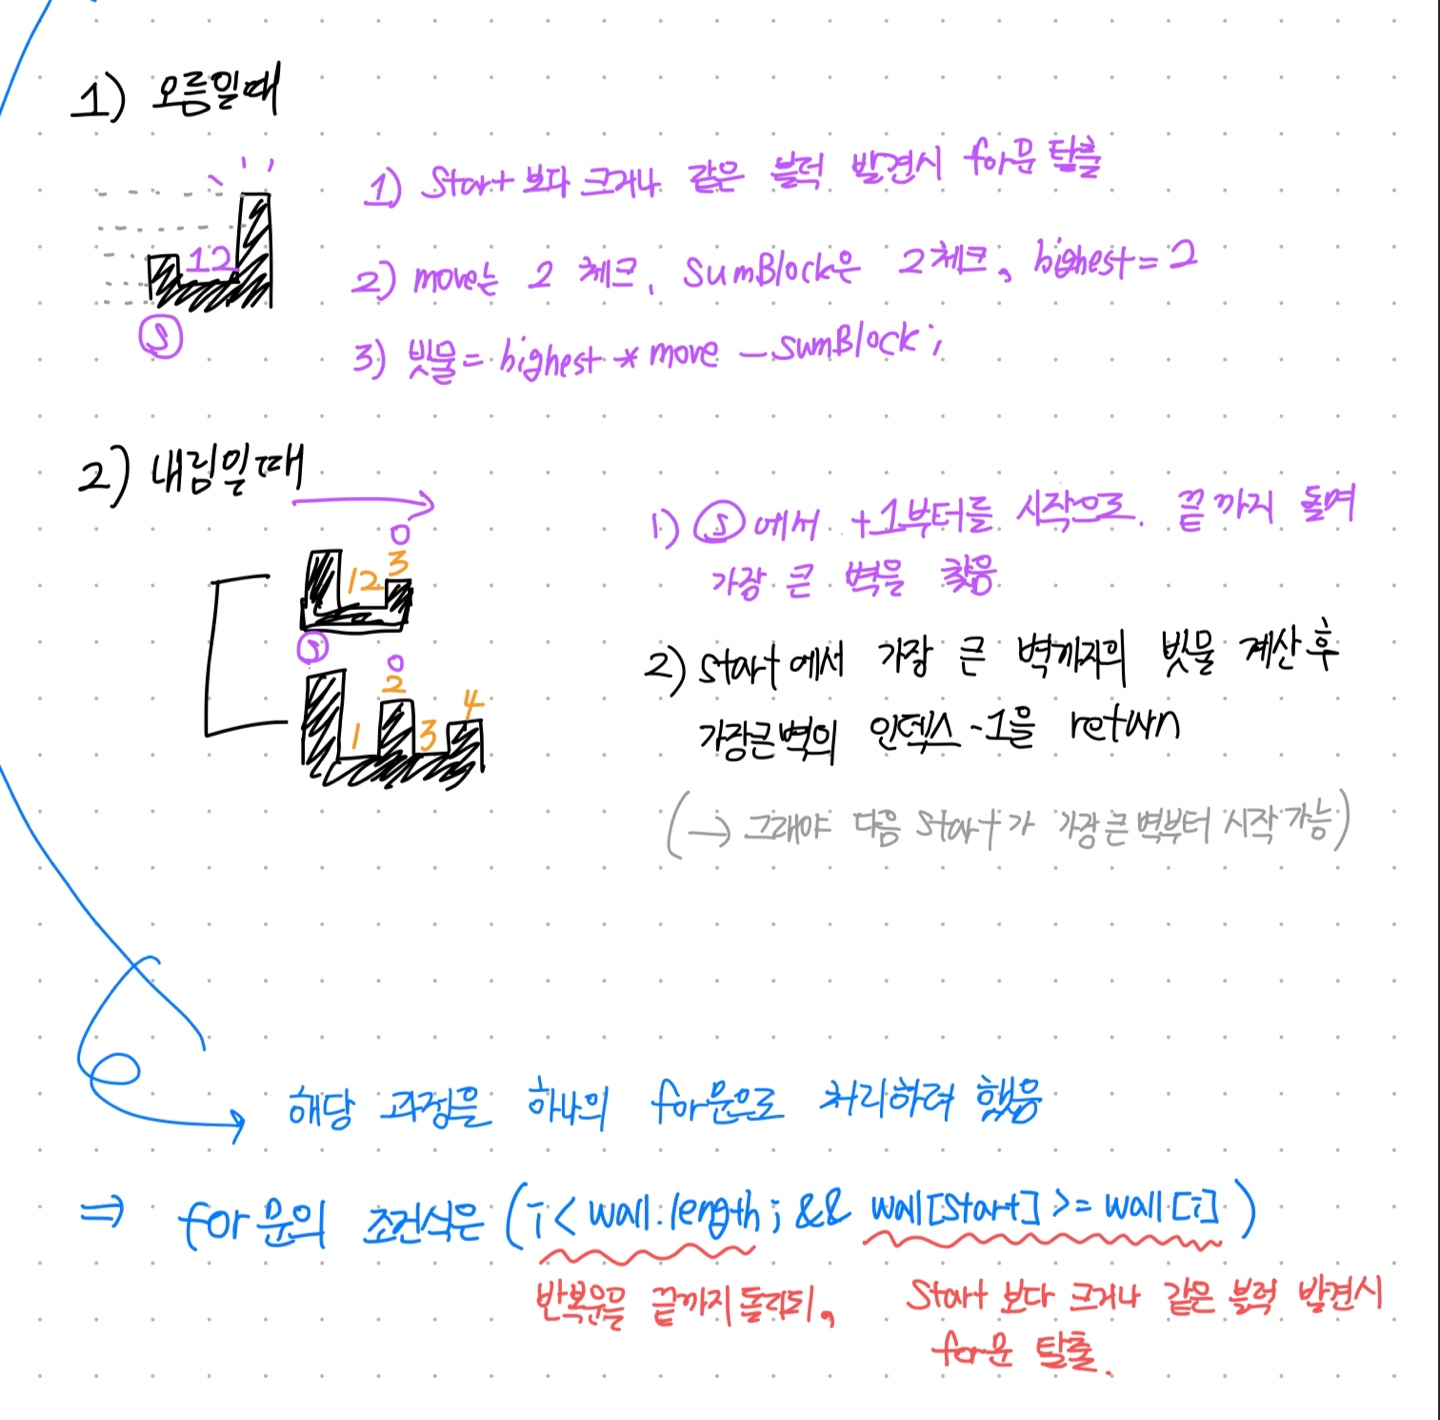 1) 오름일때
1) Start 보다 크거나 같은 블럭 발견시 for문 탈출
12
2) move는 2 체크, SumBlock은 2체크, highest = 2
S
3) 빗물 = highest * move - sumBlock;
2) 내림일때
0
3
12
S
0
2
1
3
4
1) S에서 +1부터를 시작으로. 끝까지 돌며
가장 큰 벽을 찾음
2) start에서 가장 큰 벽까지의 빗물 계산 후
가장큰벽의 인덱스 -1을 return
(→ 그래야 다음 start가 가장 큰 벽부터 시작 가능)
해당 과정을 하나의 for문으로 처리하려 했음
⇒ for문의 조건식은 (i < wall.length; && wall[start] >= wall[i])
반복문을 끝까지 돌리되,
Start 보다 크거나 같은 블럭 발견시
for문 탈출.